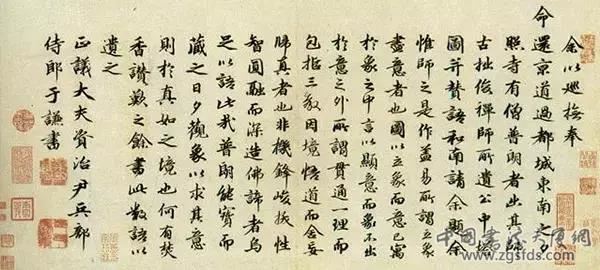 余以巡撫奉
命還京道過都城東南夕
照寺有僧普朗者出其師
古拙俊禪師所遺公中塔
圖并賛語和南請余題余
惟師之是作蓋易所謂立象
盡意者也圖以立象而意已寓
於象之中言以顯意而象不出
於意之外所謂貫通一理而
包括三教因境悟道而舍妄
歸真者也非機鋒峻拔性
智圓融而深造佛諦者烏
足以語此哉普朗能寶而
藏之日夕觀象以求其意
則於真如之境也何有焚
香讚歎之餘書此數語以
遺之
正議大夫資治尹兵部
侍郎于謙書
www.zgsfds.com